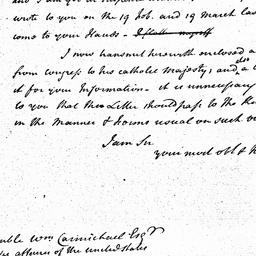 wrote to you on the 19 Feb. and 19 March las
come to your Hands - I flatter myself
I now transmit herewith enclosed a
from Congress to his catholic Majesty, and also a C
it for your Information - it is unnecessary
to you that this Letter should pass to the K
in the Manner & forms usual on such o
I am Sir
your most obt & H
ble Wm Carmichael Esqr
affaires of the united states